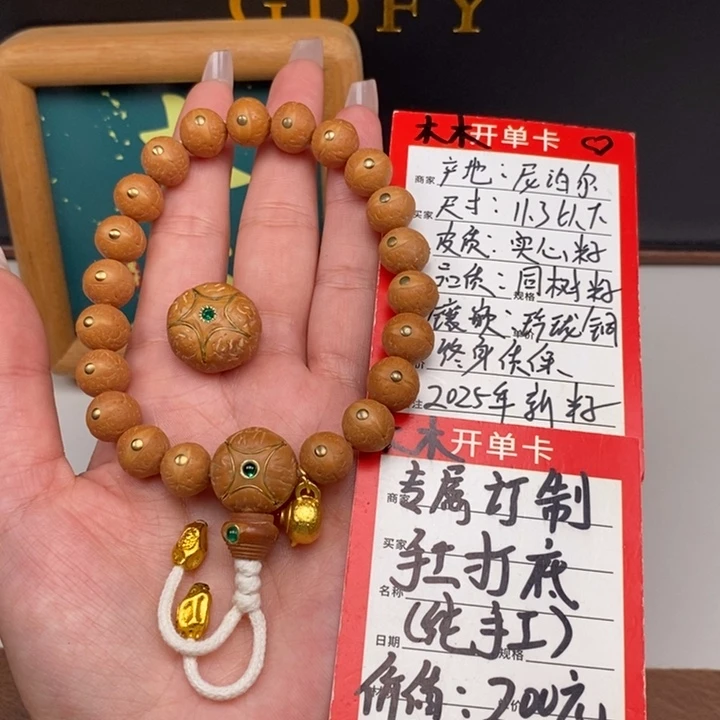 GDFY
木木开单卡
商家 产地：尼泊尔
买家 尺寸：11.3以下
皮质：实心籽
品质：同树籽
规格
镶嵌：玲珑铜
终身质保、
注 2025年新籽
木木开单卡
商家 专属订制
买家 手工打底
名称 (纯手工)
日期 规格
价值：200元